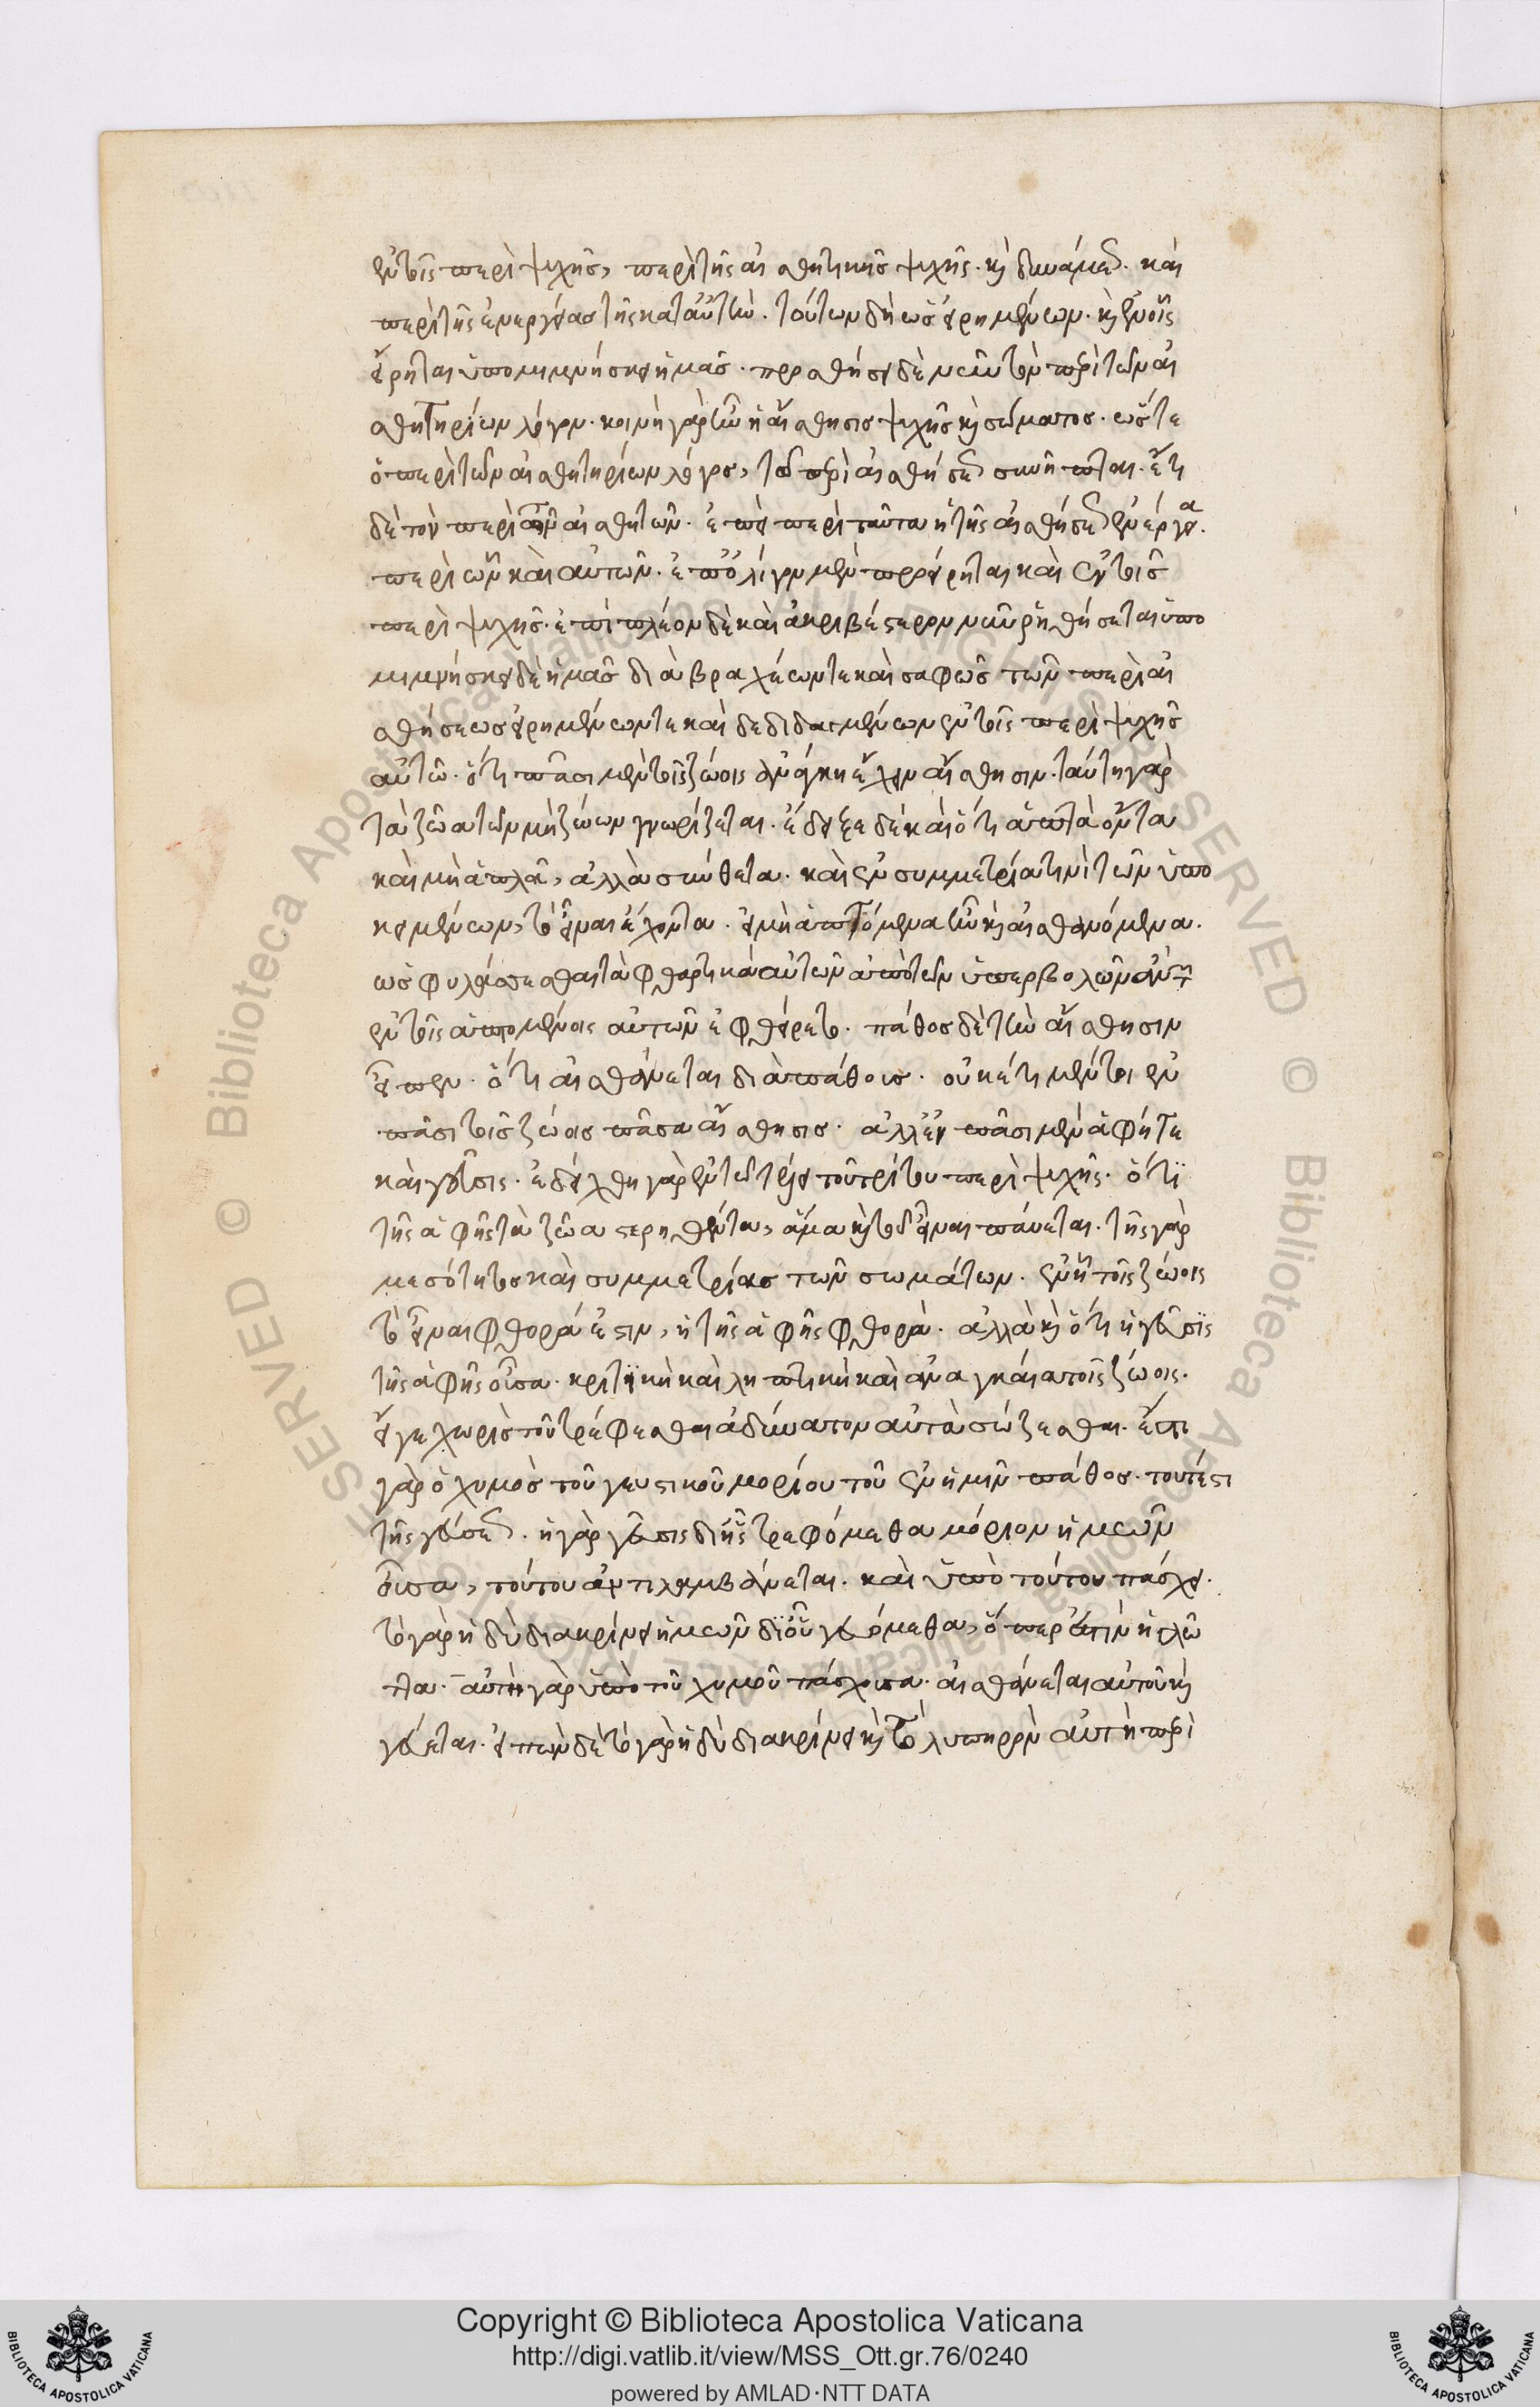 ἐν τοῖς περὶ ψυχῆς, περὶ τῆς αἰσθητικῆς ψυχῆς. καὶ δυνάμεως. καὶ
περὶ τῆς ἐνεργείας τῆς κατ' αὐτὴν. τούτων δὴ ὡς εἰρημένων. καὶ ἐν οἷς
εἴρηται ὑπομιμνήσκει ἡμᾶς. προσθήσει δὲ νῦν τὸν περὶ τῶν αἰ
σθητηρίων λόγον. κοινὴ γὰρ ἦν ἡ αἴσθησις ψυχῆς καὶ σώματος. ὥστε
ὁ περὶ τῶν αἰσθητηρίων λόγος, τῷ περὶ αἰσθήσεως συνῆπται. ἔτι
δὲ τὸν περὶ τῶν αἰσθητῶν. ἐπεὶ περὶ ταῦτα ἡ τῆς αἰσθήσεως ἐνέργεια.
περὶ ὧν καὶ αὐτῶν. ἐπ' ὀλίγον μὲν προείρηται καὶ ἐν τοῖς
περὶ ψυχῆς. ἐπὶ πλέον δὲ καὶ ἀκριβέστερον νῦν ῥηθήσεται ὑπο
μιμνήσκει δὲ ἡμᾶς διὰ βραχέων τε καὶ σαφῶς τῶν περὶ αἰ
σθήσεως εἰρημένων τε καὶ δεδιδαγμένων ἐν τοῖς περὶ ψυχῆς
αὐτῶ. ὅτι πᾶσι μὲν τοῖς ζώοις ἀνάγκη ἔχειν αἴσθησιν. ταύτη γὰρ
τὰ ζῶα τῶν μὴ ζώων γνωρίζεται. ἔδειξε δὲ καὶ ὅτι ἁπτὰ ὄντα
καὶ μὴ ἁπλᾶ, ἀλλὰ σύνθετα. καὶ ἐν συμμετρία τινὶ τῶν ὑπο
κειμένων, τὸ εἶναι ἔχοντα. εἰ μὴ ἁπτόμενα ἦν καὶ αἰσθανόμενα.
ὡς φυλάσσεσθαι τὰ φθαρτικὰ αὐτῶν ἀπὸ τῶν ὑπερβολῶν ἀντὶ
ἐν τοῖς ἁπτομένοις αὐτῶν ἐφθείρετο. πάθος δὲ τὴν αἴσθησιν
εἶπεν. ὅτι αἰσθάνεται διὰ πάθους. οὐκέτι μέντοι ἐν
πᾶσι τοῖς ζώοις πᾶσα αἴσθησις. ἀλλ' ἐν πᾶσι μὲν ἁφή τε
καὶ γεῦσις. ἐδείχθη γὰρ ἐν τῶ τρίτω τοῦ τρίτου περὶ ψυχῆς. ὅτι
τῆς ἁφῆς τὰ ζῶα στερηθέντα, ἅμα καὶ τοῦ εἶναι παύεται. τῆς γὰρ
μεσότητος καὶ συμμετρίας τῶν σωμάτων. ἐν ᾗ τοῖς ζώοις
τὸ εἶναι φθορά ἐστιν, ἡ τῆς ἁφῆς φθορὰ. ἀλλὰ καὶ ὅτι ἡ γεῦσις
τῆς ἁφῆς οὖσα. κριτικὴ καὶ ληπτικὴ καὶ ἀναγκαία τοῖς ζώοις.
εἴγε χωρὶς τοῦ τρέφεσθαι ἀδύνατον αὐτὰ σώζεσθαι. ἔστι
γὰρ ὁ χυμὸς τοῦ γευστικοῦ μορίου τοῦ ἐν ἡμῖν πάθος. τουτέστι
τῆς γεύσεως. ἡ γὰρ γεῦσις δι' ἧς τρεφόμεθα μόριον ἡμῶν
οὖσα, τούτου ἀντιλαμβάνεται. καὶ ὑπὸ τούτου πάσχει.
τὸ γὰρ ἡδὺ διακρίνει ἡμῶν δι' οὗ γευόμεθα, ὅπερ ἐστὶν ἡ γλῶ
ττα. αὐτὴ γὰρ ὑπὸ τοῦ χυμοῦ πάσχουσα. αἰσθάνεται αὐτοῦ καὶ
γεύεται. εἰπὼν δὲ τὸ γὰρ ἡδὺ διακρίνει καὶ τὸ λυπηρὸν αὐτὴ περὶ
Copyright © Biblioteca Apostolica Vaticana
http://digi.vatlib.it/view/MSS_Ott.gr.76/0240
powered by AMLAD·NTT DATA